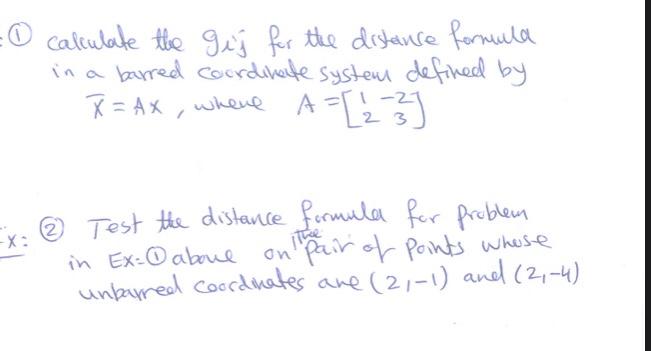 ① calculate the gij for the distance formula
in a barred coordinate system defined by
x̄ = Ax , where A = [1 -2; 2 3]
x: ② Test the distance formula for problem
in Ex-① above on the pair of points whose
unbarred coordinates are (2,-1) and (2,-4)